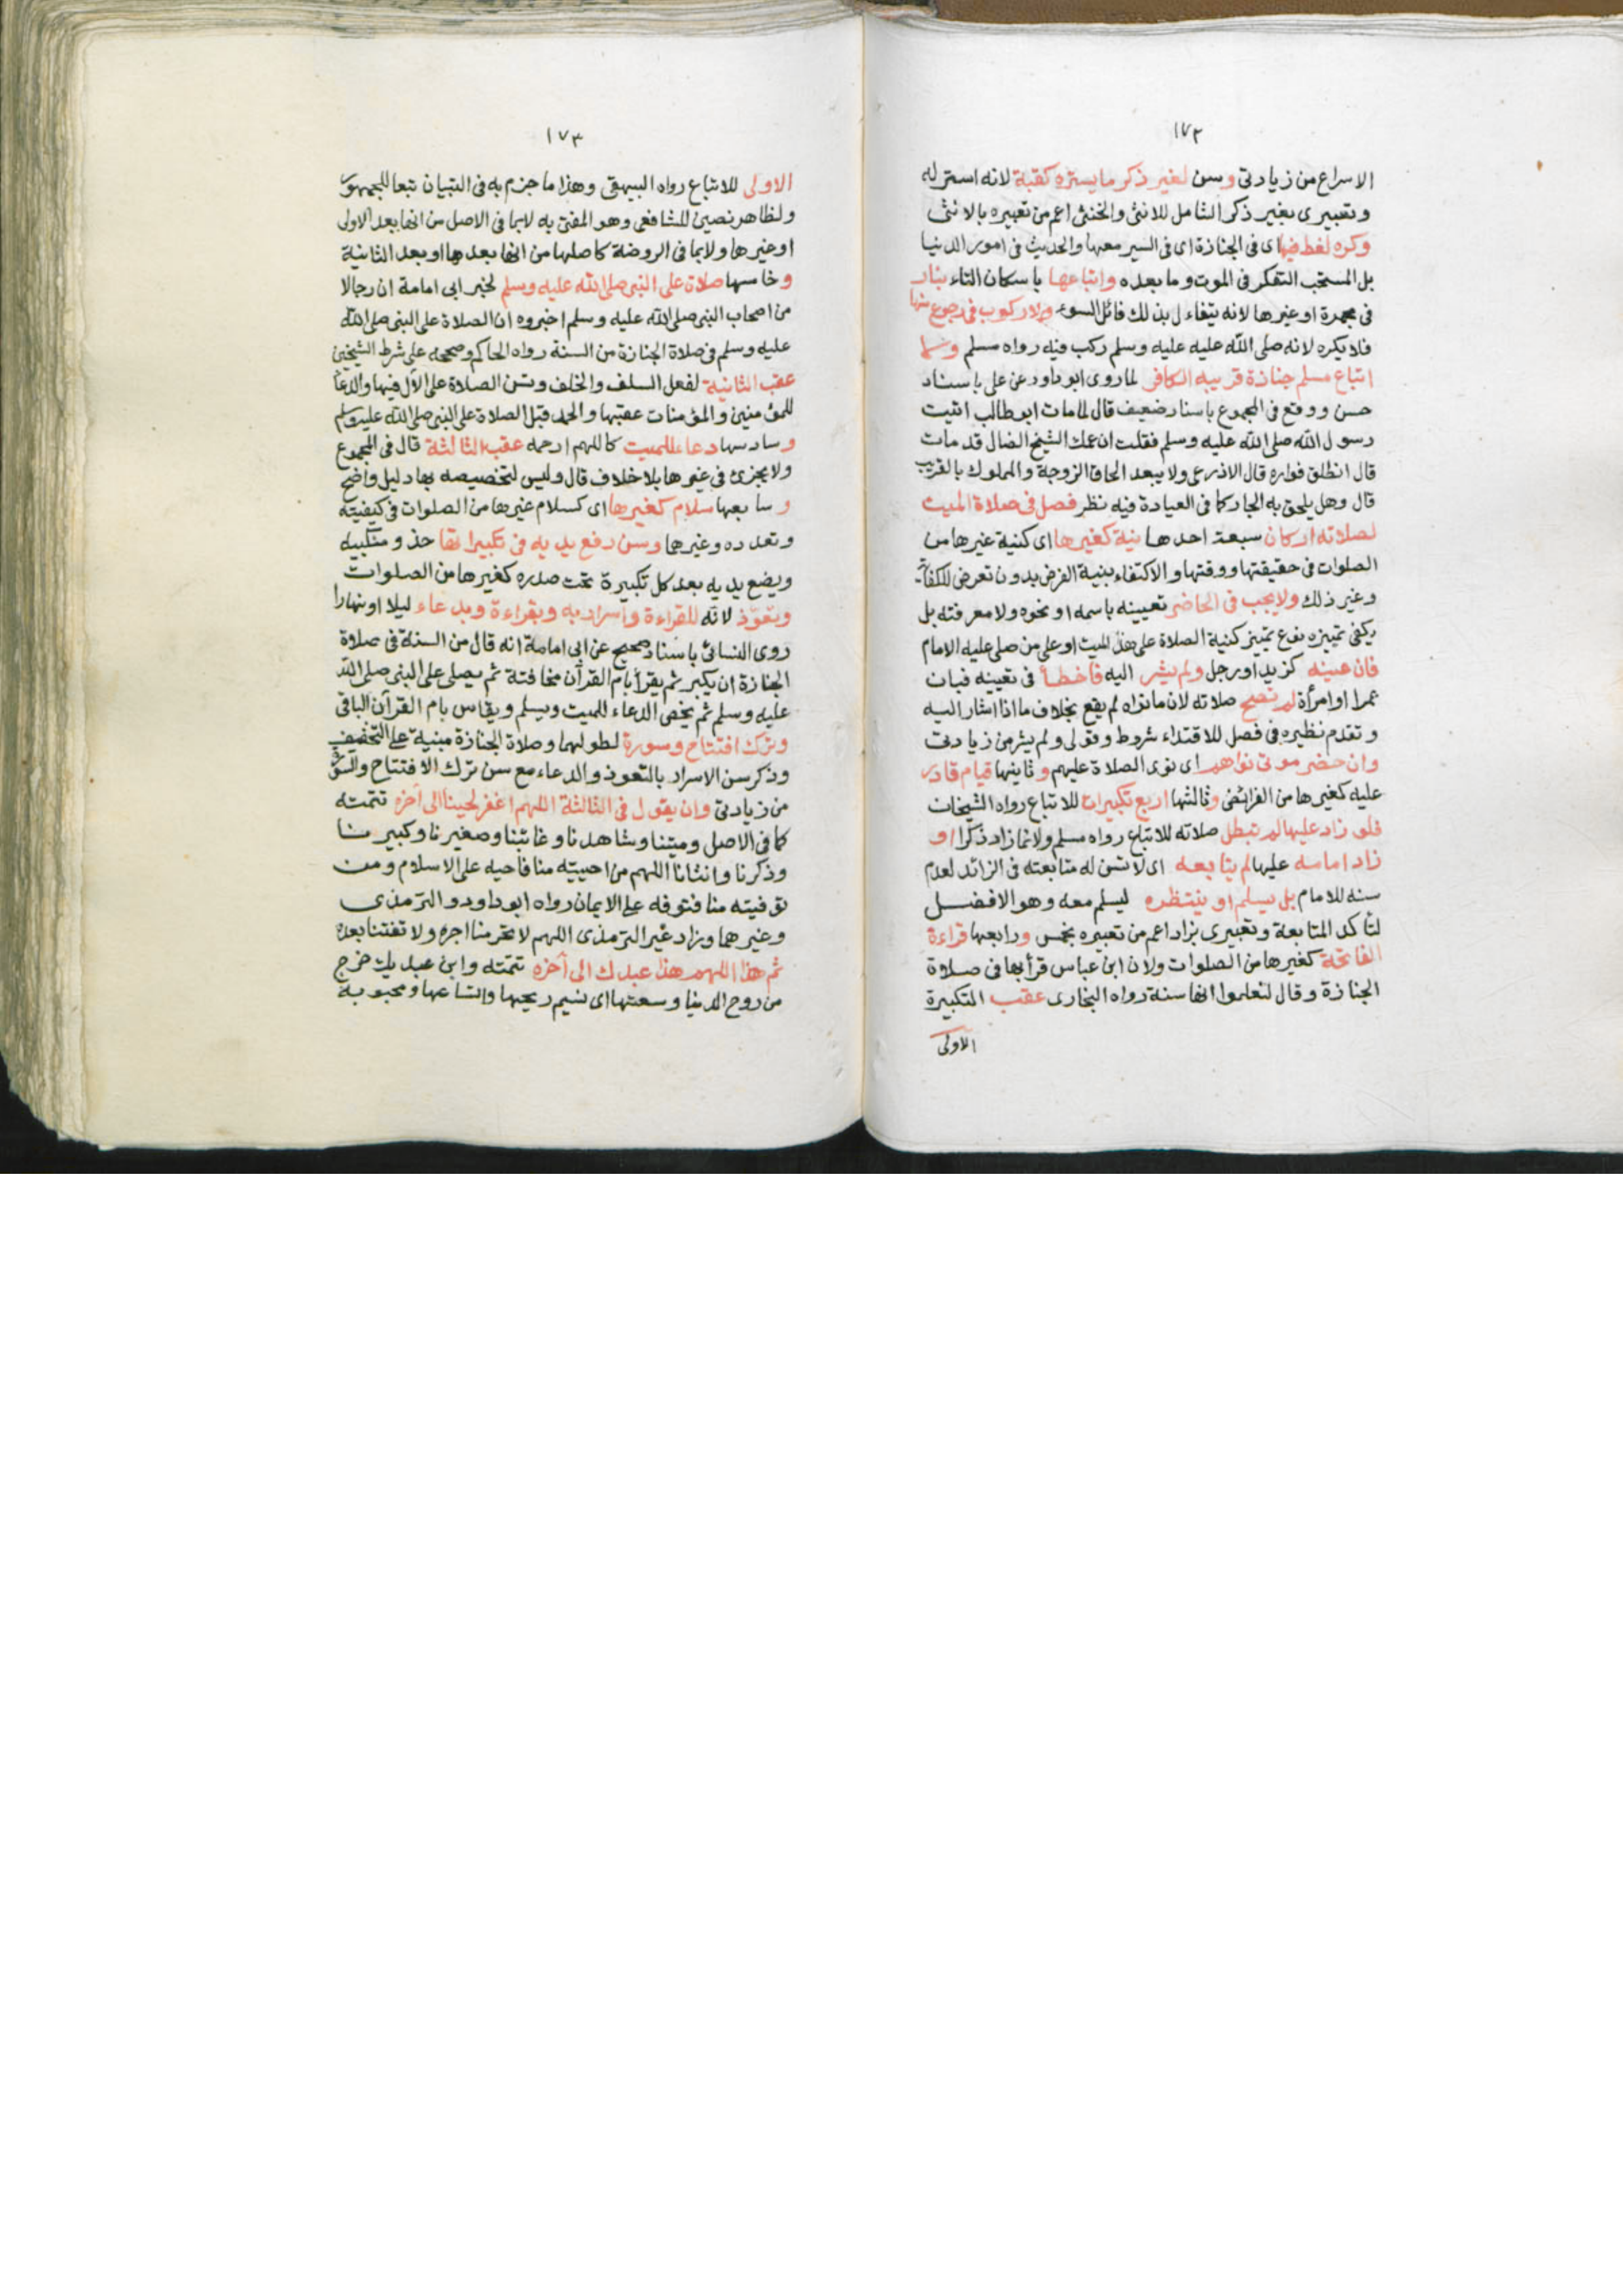 ١٧٢
الاسراع من زيادتى وسن لغير ذكر ما يستره كقبة لانه استر له
وتعبيرى بغير ذكر الشامل للانثى والخنثى اعم من تعبيره بالانثى
وكره لغط فيها اى فى الجنازة اى فى السير معها والحديث فى امور الدنيا
بل المستحب التفكر فى الموت وما بعده واتباعها باسكان التاء بنار
فى مجمرة او غيرها لانه يتفاءل بذلك فائل السوء ولا ركوب فى رجوع منها
فلا يكره لانه صلى الله عليه عليه وسلم ركب فيه رواه مسلم ولا
اتباع مسلم جنازة قريبه الكافر لما روى ابو داود عن على باسناد
حسن ووقع فى المجموع باسناد ضعيف قال لما مات ابو طالب اتيت
رسول الله صلى الله عليه وسلم فقلت ان عمك الشيخ الضال قد مات
قال انطلق فواره قال الاذرعى ولا يبعد الحاق الزوجة والمملوك بالقريب
قال وهل يلحق به الجار كما فى العيادة فيه نظر فصل فى صلاة الميت
لصلاته اركان سبعة احدها نية كغيرها اى كنية غيرها من
الصلوات فى حقيقتها ووقتها والاكتفاء بنية الفرض بدون تعرض للكفاية
وغير ذلك ولا يجب فى الحاضر تعيينه باسمه او نحوه ولا معرفته بل
يكفى تمييزه نوع تمييز كنية الصلاة على هذا الميت او على من صلى عليه الامام
فان عينه كزيد او رجل ولم يشر اليه فاخطأ فى تعيينه فبان
عمرا او امرأة لم تصح صلاته لان ما نواه لم يقع بخلاف ما اذا اشار اليه
وتقدم نظيره فى فصل للاقتداء شروط وقولى ولم يشر من زيادتى
وان حضر موتى نواهم اى نوى الصلاة عليهم وثانيها قيام قادر
عليه كغيرها من الفرائض وثالثها اربع تكبيرات للاتباع رواه الشيخان
فلو زاد عليها لم تبطل صلاته للاتباع رواه مسلم ولانه انما زاد ذكرا او
زاد امامه عليها لم يتابعه اى لا تسن له متابعته فى الزائد لعدم
سنه للامام بل يسلم او ينتظره ليسلم معه وهو الافضل
لتأكد المتابعة وتعبيرى بزاد اعم من تعبيره بخمس ورابعها قراءة
الفاتحة كغيرها من الصلوات ولان ابن عباس قرأ بها فى صلاة
الجنازة وقال لتعلموا انها سنة رواه البخارى عقب التكبيرة
الاولى
١٧٣
الاولى للاتباع رواه البيهقى وهذا ما جزم به فى التبيان تبعا للجمهور
ولظاهر نصين للشافعى وهو المفتى به لا بما فى الاصل من انها بعد الاولى
او غيرها ولا بما فى الروضة كاصلها من انها بعدها او بعد الثانية
وخامسها صلاة على النبى صلى الله عليه وسلم لخبر ابى امامة ان رجالا
من اصحاب النبى صلى الله عليه وسلم اخبروه ان الصلاة على النبى صلى الله
عليه وسلم فى صلاة الجنازة من السنة رواه الحاكم وصححه على شرط الشيخين
عقب الثانية لفعل السلف والخلف وتسن الصلاة على الآل فيها والدعاء
للمؤمنين والمؤمنات عقبها والحمد قبل الصلاة على النبى صلى الله عليه وسلم
وسادسها دعاء للميت كاللهم ارحمه عقب الثالثة قال فى المجموع
ولا يجزئ فى غيرها بلا خلاف قال وليس لتخصيصه بها دليل واضح
وسابعها سلام كغيرها اى كسلام غيرها من الصلوات فى كيفيته
وتعدده وغيرهما وسن رفع يديه فى تكبيراتها حذو منكبيه
ويضع يديه بعد كل تكبيرة تحت صدره كغيرها من الصلوات
وتعوذ لانه للقراءة واسراربه وبقراءة وبدعاء ليلا او نهارا
روى النسائى باسناد صحيح عن ابى امامة انه قال من السنة فى صلاة
الجنازة ان يكبر ثم يقرأ بام القرآن مخافتة ثم يصلى على النبى صلى الله
عليه وسلم ثم يخص الدعاء للميت ويسلم ويقاس بام القرآن الباقى
وترك افتتاح وسورة لطولهما وصلاة الجنازة مبنية على التخفيف
وذكر سن الاسرار بالتعوذ والدعاء مع سن ترك الافتتاح والسورة
من زيادتى وان يقول فى الثالثة اللهم اغفر لحينا الى آخره تتمته
كما فى الاصل وميتنا وشاهدنا وغائبنا وصغيرنا وكبيرنا
وذكرنا وانثانا اللهم من احييته منا فاحيه على الاسلام ومن
توفيته منا فتوفه على الايمان رواه ابو داود والترمذى
وغيرهما وزاد غير الترمذى اللهم لا تحرمنا اجره ولا تفتنا بعده
ثم هذا اللهم هذا عبدك الى آخره تتمته وابن عبديك خرج
من روح الدنيا وسعتها اى نسيم ريحها واتساعها ومحبوبه